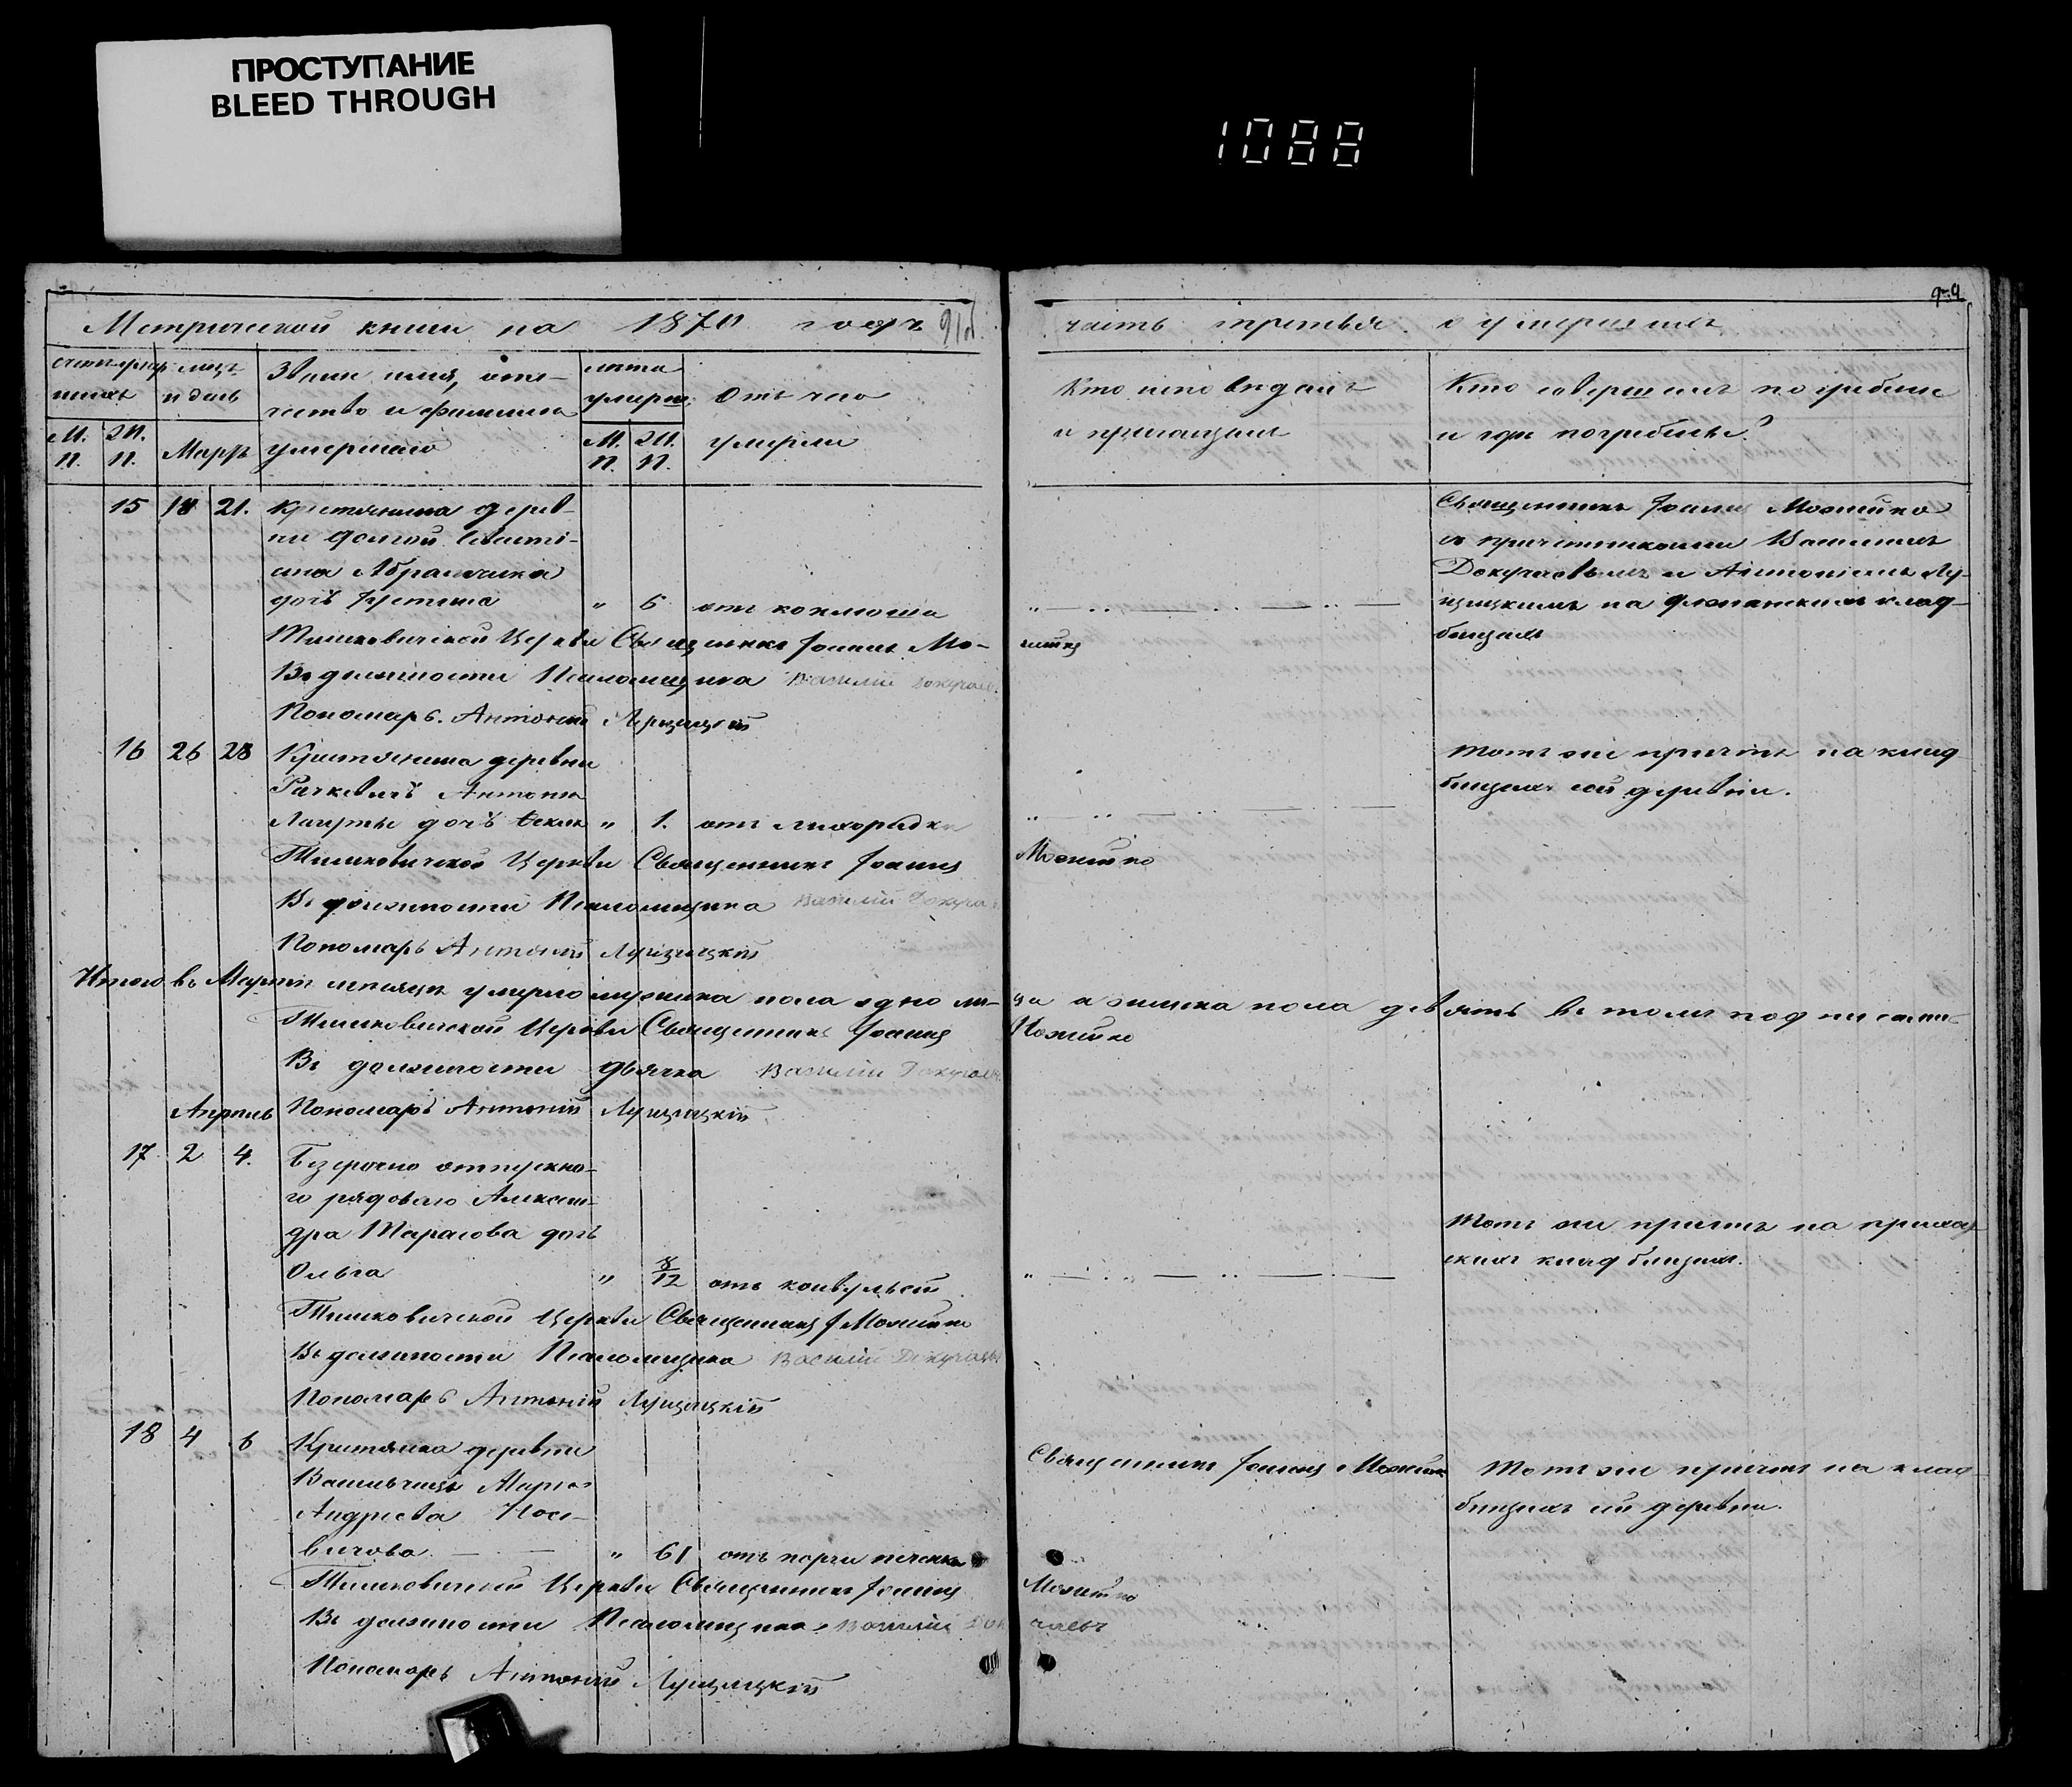 ПРОСТУПАНИЕ
BLEED THROUGH
1088
Метрической книги на 1870 годъ
часть третья о умершихъ
Званіе имя, оте-
чество и фамилія
умершаго
лѣта
умерш.
отъ чего
умерли
М. П.
Ж. П.
и день
Мартъ
М. П.
Ж. П.
Кто исповѣдалъ
и пріобщалъ
Кто совершалъ погребеніе
и гдѣ погребены?
15 18 21. Крестьянина дерев-
ни
дочь
" 6 отъ коклюша
Священникъ Іоаннъ Можейко
съ причетниками Василіемъ
Докучаевымъ и Антоніемъ Лу-
щицкимъ на клад-
бищахъ
Тишковичской Церкви Священникъ Іоаннъ Мо-
жейко
Въ должности Псаломщика Василій Докучаев
Пономарь Антоній Лущицкій
16 26 28 Крестьянина деревни
Антона
дочь
" 1. отъ лихорадки
Тотъ же причтъ на клад-
бищахъ сей деревни.
Тишковичской Церкви Священникъ Іоаннъ
Можейко
Въ должности Псаломщика Василій Докуча
Пономарь Антоній Лущицкій
Итого въ Мартѣ мѣсяцѣ умерло мужска пола одно ли-
ца а женска пола девять въ томъ подписали
Тишковичской Церкви Священникъ Іоаннъ
Можейко
Въ должности дьячка Василій Докучаев
Апрѣль
Пономарь Антоній Лущицкій
17 2 4. Безсрочно отпускна-
го рядоваго Алексан-
дра Тарасова дочь
Ольга
" 8/12 отъ конвульсій
Тотъ же причтъ на приход-
скихъ кладбищахъ.
Тишковичской Церкви Священникъ І Можейко
Въ должности Псаломщика Василій Докучаевъ
Пономарь Антоній Лущицкій
18 4 6 Крестьянка деревни
Васильчицъ Марія
Андреева Носе-
вичова
" 61 отъ порчи печенки
Священникъ Іоаннъ Можейко
Тотъ же причтъ на клад-
бищахъ сей деревни.
Тишковичской Церкви Священникъ Іоаннъ
Можейко
Въ должности Псаломщика Василій Доку
чаевъ
Пономарь Антоній Лущицкій